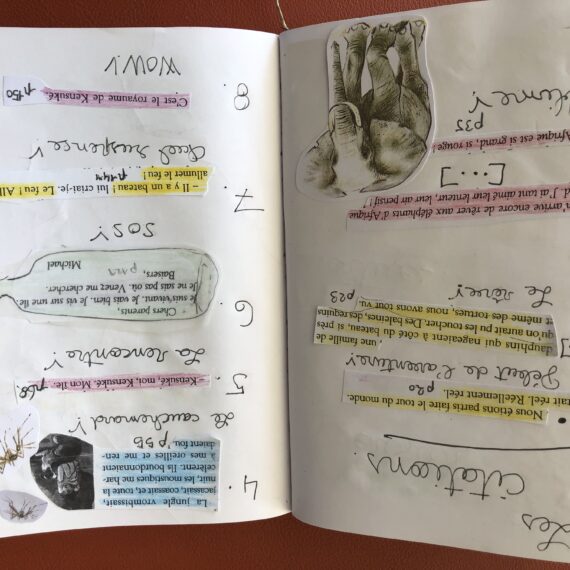 Les
citations
Nous étions partis faire le tour du monde.
tait réel. Réellement réel. p20
Début de l'aventure!
une famille de
dauphins qui nageaient du côté du bateau, si près
qu'on aurait pu les toucher. Des baleines, des requins
et même des tortues, nous avons tout vu. p23
Le rêve!
m'arrive encore de rêver aux éléphants d'Afrique
J'ai tant aimé leur lenteur, leur air pensif !
[...]
Afrique est si grand, si rouge !
p35
4.
La jungle vrombissait,
jacassait, coassait et, toute la
nuit, les moustiques me har-
celèrent. Ils bourdonnaient
à mes oreilles et me ren-
daient fou. p55
Le cauchemard!
5. – Kensuké, moi, Kensuké. Mon île. p68
La rencontre!
6.
Chers parents,
Je suis vivant. Je vais bien. Je vis sur une île.
Je ne sais pas où. Venez me chercher.
Baisers,
Michael
SOS!
7. – Il y a un bateau ! lui criai-je. Le feu ! All
allumer le feu ! p144
Quel suspence!
8. C'est le royaume de Kensuké. p150
WOW!